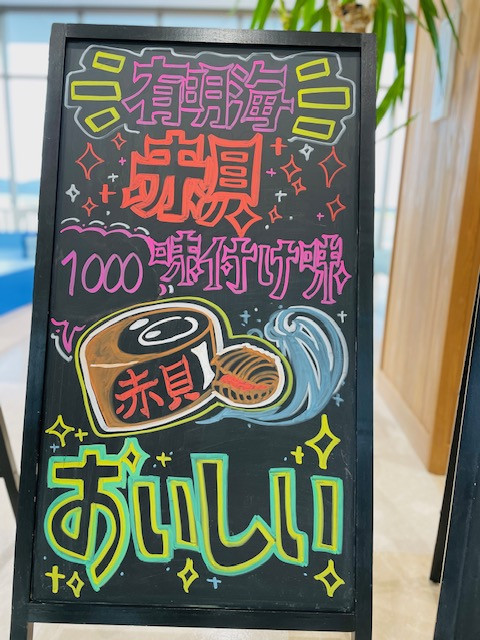 有明海
赤貝の
1000 味付け味
赤貝
おいしい